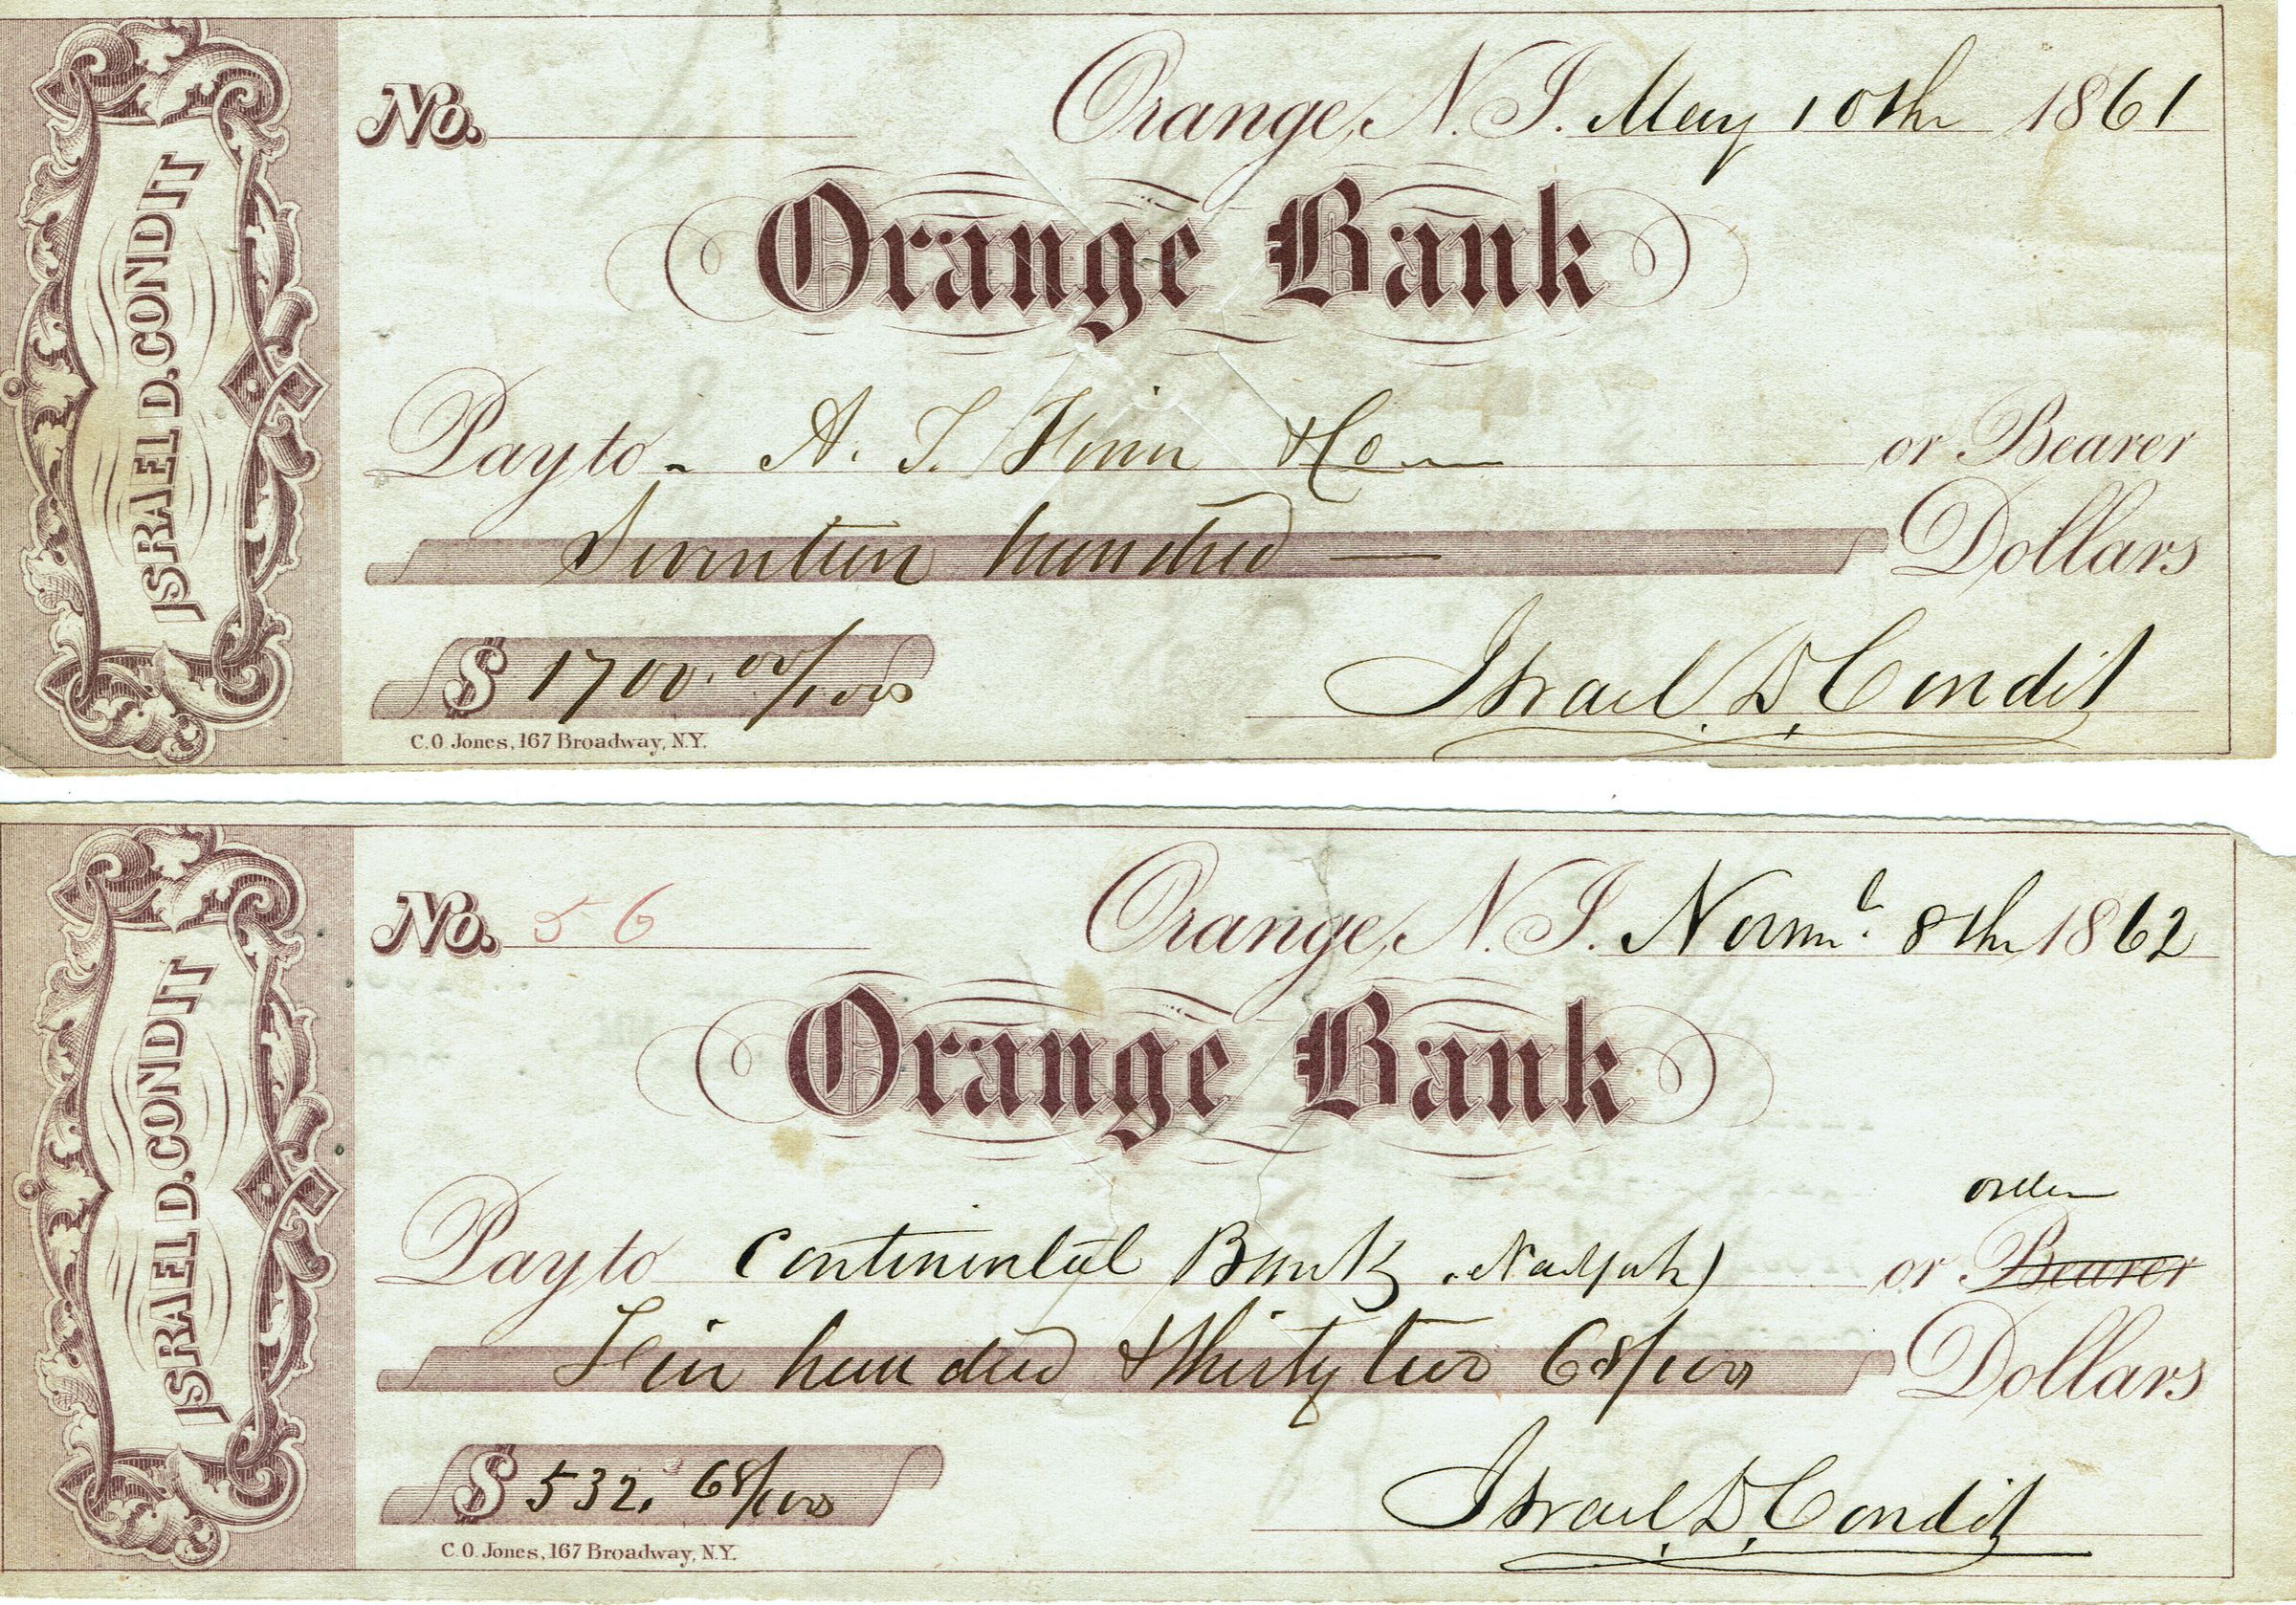 ISRAEL D. CONDIT
No.
Orange, N.J. May 10th 1861
Orange Bank
Pay to - A. S. & Co or Bearer
Seventeen hundred — Dollars
$ 1700.00/100
Israel D. Condit
C.O. Jones, 167 Broadway, N.Y.
ISRAEL D. CONDIT
No. 56
Orange, N.J. 8th 1862
Orange Bank
order
Pay to Continental Bank or Bearer
Five hundred & thirty two 68/100 Dollars
$ 532. 68/100
Israel D. Condit
C.O. Jones, 167 Broadway, N.Y.